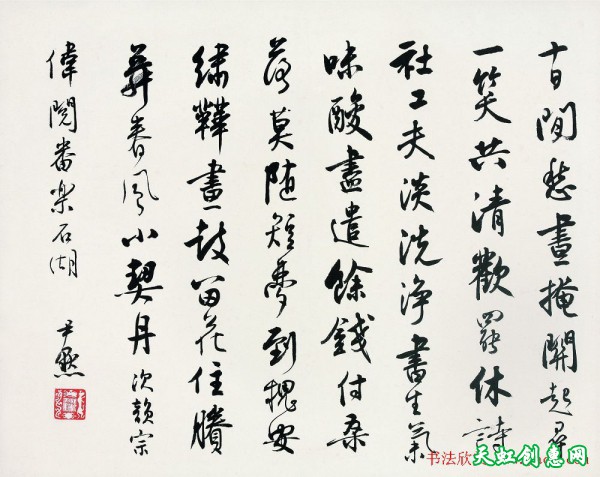 十日閒愁晝掩關起尋
一笑共清歡罷休詩
社工夫淡洗淨書生氣
味酸盡遣餘錢付桑
落莫隨短夢到槐安
繡鞯畫鼓留花住賸
舞春風小契丹 次韻宗
偉閱番樂石湖 尹默
书法欣
天虹创意网